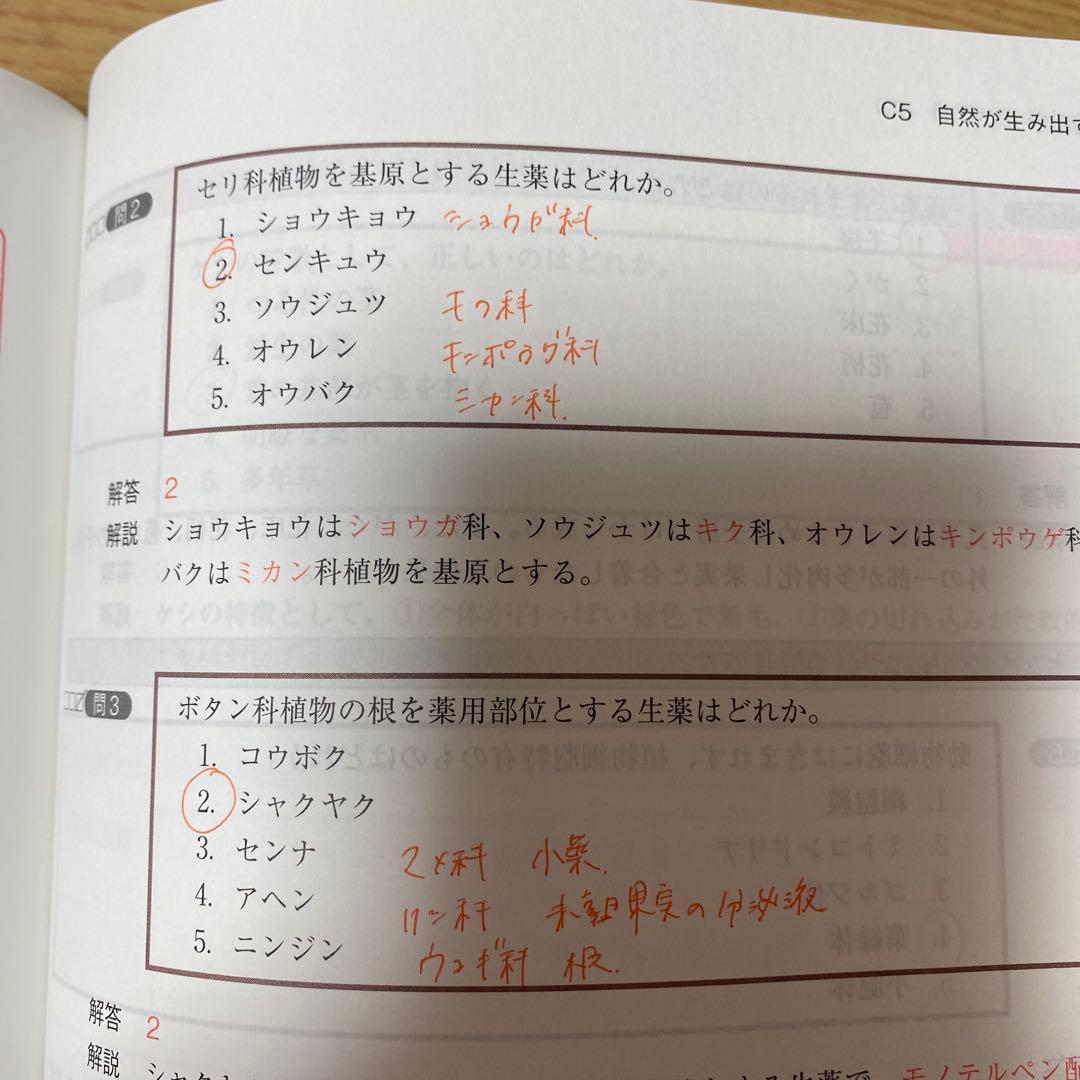 C5 自然が生み出す
問2 セリ科植物を基原とする生薬はどれか。
1. ショウキョウ ショウガ科
2. センキュウ
3. ソウジュツ キク科
4. オウレン キンポウゲ科
5. オウバク ミカン科
解答 2
解説 ショウキョウはショウガ科、ソウジュツはキク科、オウレンはキンポウゲ科
バクはミカン科植物を基原とする。
問3 ボタン科植物の根を薬用部位とする生薬はどれか。
1. コウボク
2. シャクヤク
3. センナ マメ科 小葉
4. アヘン ケシ科 未熟果実の分泌液
5. ニンジン ウコギ科 根
解答 2
解説
生薬で、モノテルペン配